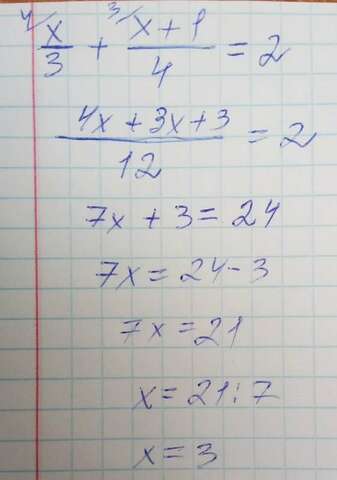 4/ x/3 + 3/ (x + 1)/4 = 2
(4x + 3x + 3)/12 = 2
7x + 3 = 24
7x = 24 - 3
7x = 21
x = 21 : 7
x = 3